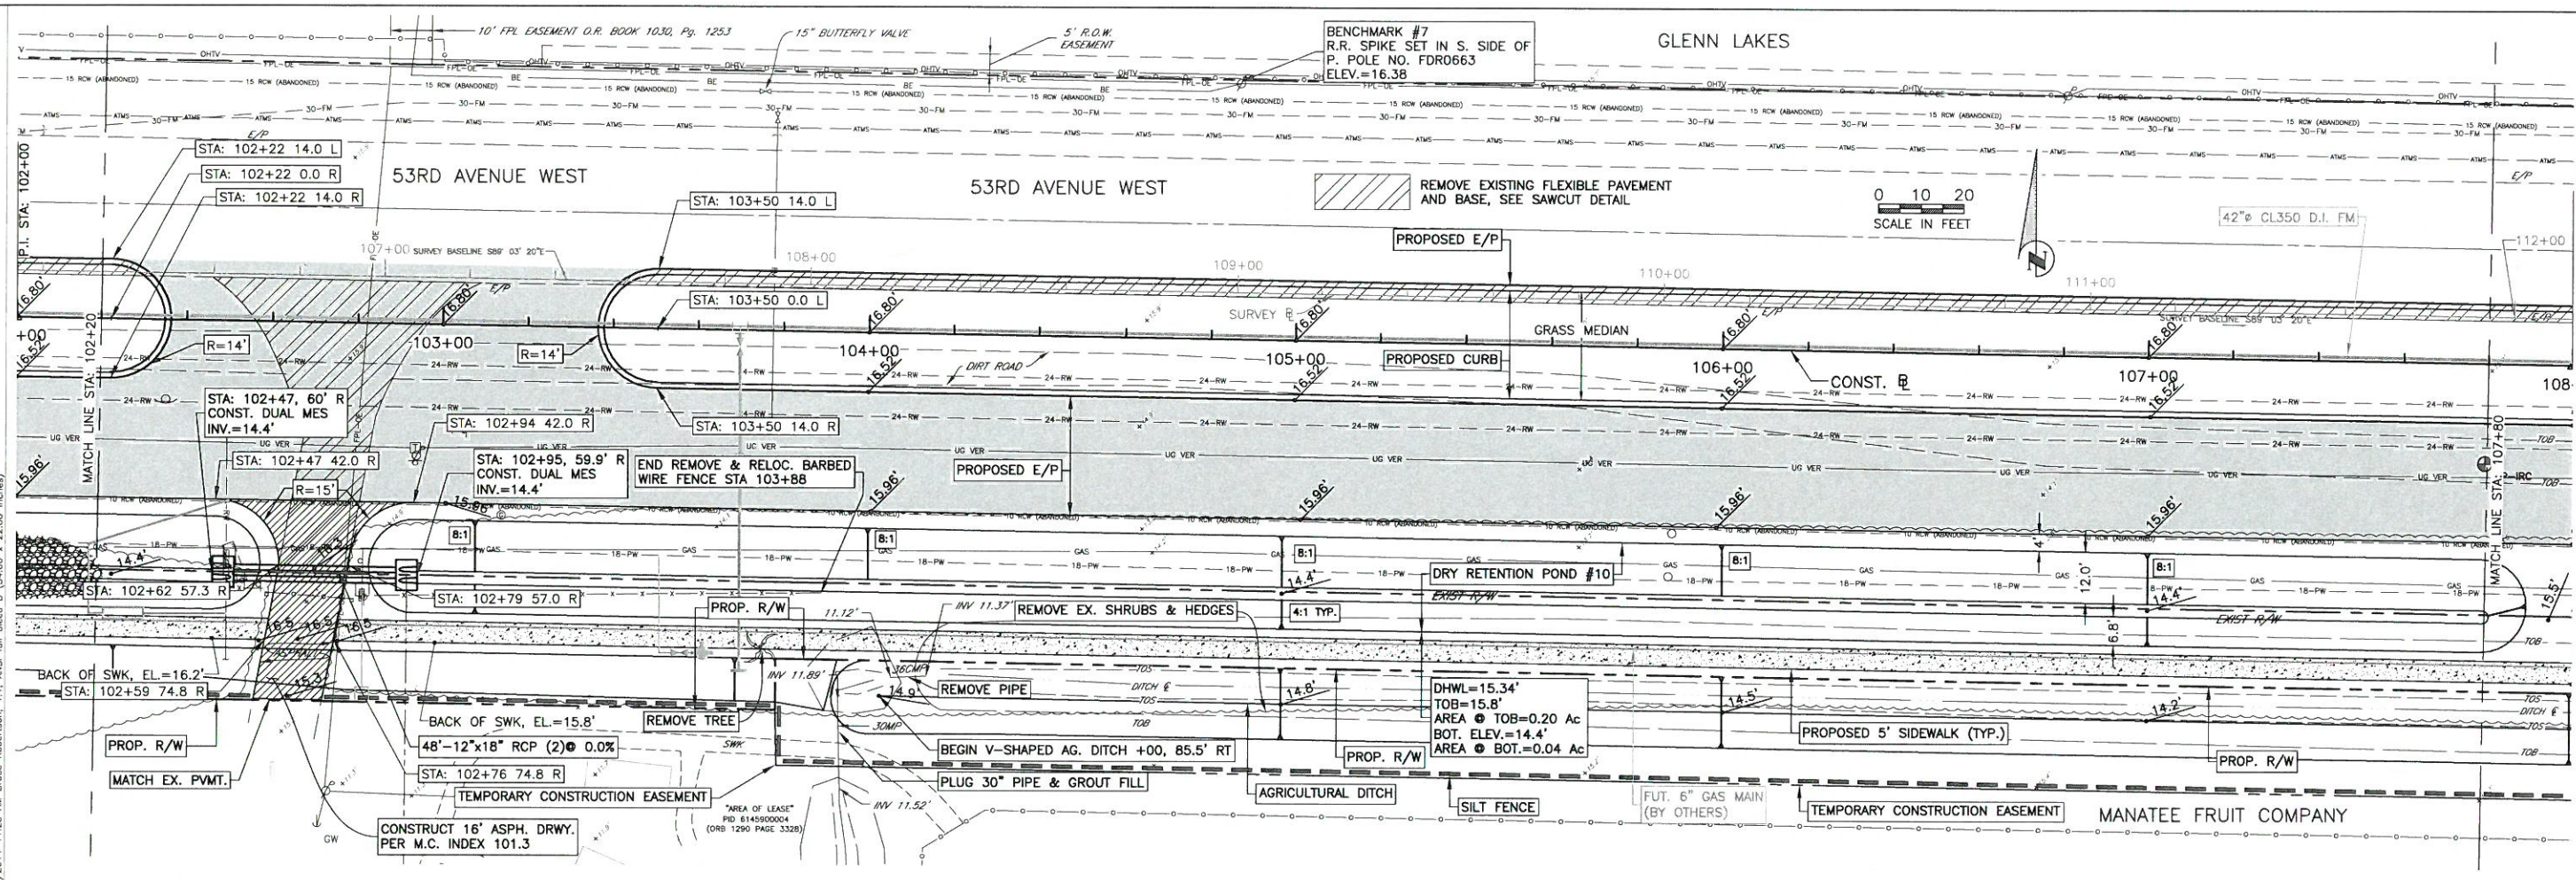 10' FPL EASEMENT O.R. BOOK 1030, Pg. 1253
15" BUTTERFLY VALVE
5' R.O.W.
EASEMENT
BENCHMARK #7
R.R. SPIKE SET IN S. SIDE OF
P. POLE NO. FDR0663
ELEV.=16.38
GLENN LAKES
OHTV
FPL-OE
BE
15 RCW (ABANDONED)
30-FM
ATMS
E/P
P.I. STA: 102+00
STA: 102+22 14.0 L
STA: 102+22 0.0 R
STA: 102+22 14.0 R
53RD AVENUE WEST
53RD AVENUE WEST
STA: 103+50 14.0 L
REMOVE EXISTING FLEXIBLE PAVEMENT
AND BASE, SEE SAWCUT DETAIL
0 10 20
SCALE IN FEET
N
42"ø CL350 D.I. FM
PROPOSED E/P
107+00 SURVEY BASELINE S89° 03' 20"E
108+00
109+00
110+00
111+00
112+00
16.80'
E/P
STA: 103+50 0.0 L
16.80'
SURVEY BL
16.80'
GRASS MEDIAN
16.80'
E/P
16.80'
SURVEY BASELINE S89° 03' 20"E
E/P
+00
16.52'
MATCH LINE STA: 102+20
R=14'
103+00
R=14'
104+00
105+00
106+00
107+00
108
PROPOSED CURB
CONST. BL
DIRT ROAD
16.52'
16.52'
16.52'
16.52'
24-RW
4-RW
STA: 102+47, 60' R
CONST. DUAL MES
INV.=14.4'
STA: 102+94 42.0 R
STA: 103+50 14.0 R
UG VER
STA: 102+47 42.0 R
STA: 102+95, 59.9' R
CONST. DUAL MES
INV.=14.4'
END REMOVE & RELOC. BARBED
WIRE FENCE STA 103+88
PROPOSED E/P
TOB
IRC
15.96'
R=15'
15.96'
15.96'
15.96'
15.96'
15.96'
10 RCW (ABANDONED)
8:1
8:1
8:1
8:1
8:1
GAS
18-PW
14.4'
4'
12.0'
MATCH LINE STA: 107+80
STA: 102+62 57.3 R
STA: 102+79 57.0 R
DRY RETENTION POND #10
14.4'
EXIST R/W
14.4'
EXIST R/W
15.5'
6.8'
PROP. R/W
11.12'
INV 11.37'
REMOVE EX. SHRUBS & HEDGES
4:1 TYP.
16.5
16.5
16.5
BACK OF SWK, EL.=16.2'
STA: 102+59 74.8 R
15.3'
INV 11.89'
14.9'
REMOVE PIPE
TOS
DITCH CL
TOS
TOB
14.8'
DHWL=15.34'
TOB=15.8'
AREA @ TOB=0.20 Ac
BOT. ELEV.=14.4'
AREA @ BOT.=0.04 Ac
14.5'
14.2'
TOS
DITCH CL
TOS
TOB
BACK OF SWK, EL.=15.8'
REMOVE TREE
PROP. R/W
48'-12"x18" RCP (2)@ 0.0%
SWK
BEGIN V-SHAPED AG. DITCH +00, 85.5' RT
PROP. R/W
PROPOSED 5' SIDEWALK (TYP.)
PROP. R/W
MATCH EX. PVMT.
STA: 102+76 74.8 R
PLUG 30" PIPE & GROUT FILL
TEMPORARY CONSTRUCTION EASEMENT
AGRICULTURAL DITCH
INV 11.52'
SILT FENCE
FUT. 6" GAS MAIN
(BY OTHERS)
TEMPORARY CONSTRUCTION EASEMENT
MANATEE FRUIT COMPANY
"AREA OF LEASE"
PID 6145900004
(ORB 1290 PAGE 3328)
CONSTRUCT 16' ASPH. DRWY.
PER M.C. INDEX 101.3
GW